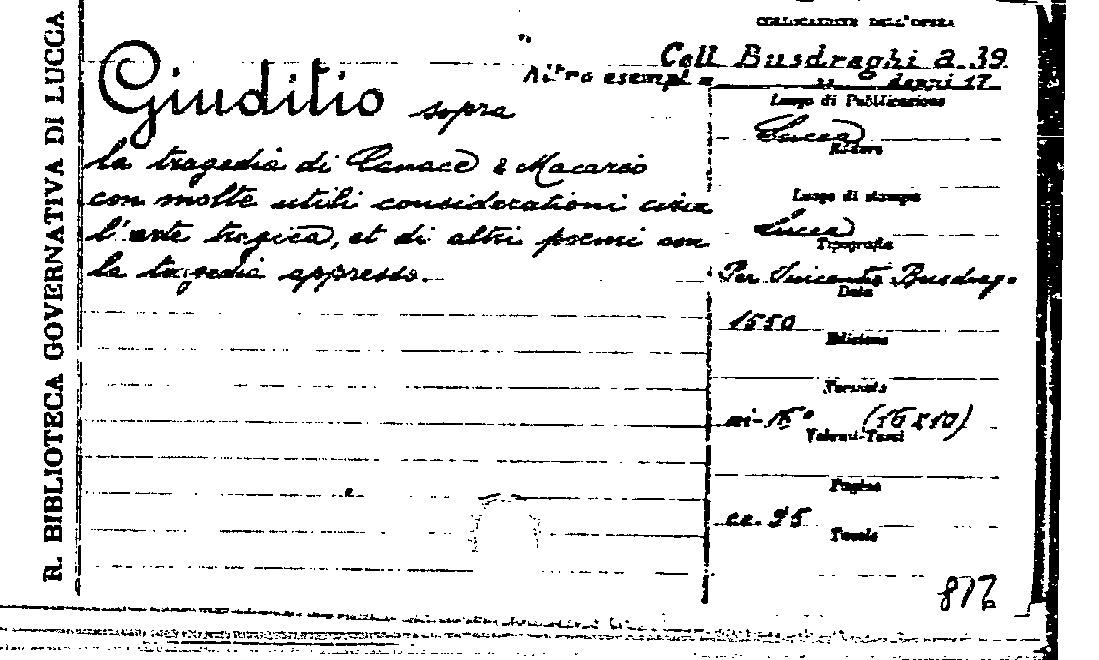 R. BIBLIOTECA GOVERNATIVA DI LUCCA
COLLOCAZIONE DELL'OPERA
Coll. Busdraghi a. 39
Altro esempl
Giuditio sopra
la tragedia di Canace e Macareo
con molte utili considerationi circa
l'arte tragica, et di altri poemi con
la tragedia appresso.
Luogo di Pubblicazione
Lucca
Editore
Luogo di stampa
Lucca
Tipografia
Per Vincentio Busdrago
Data
1550
Edizione
Formato
in-16° (16x10)
Volumi-Tomi
Pagine
cc. 95
Tavole